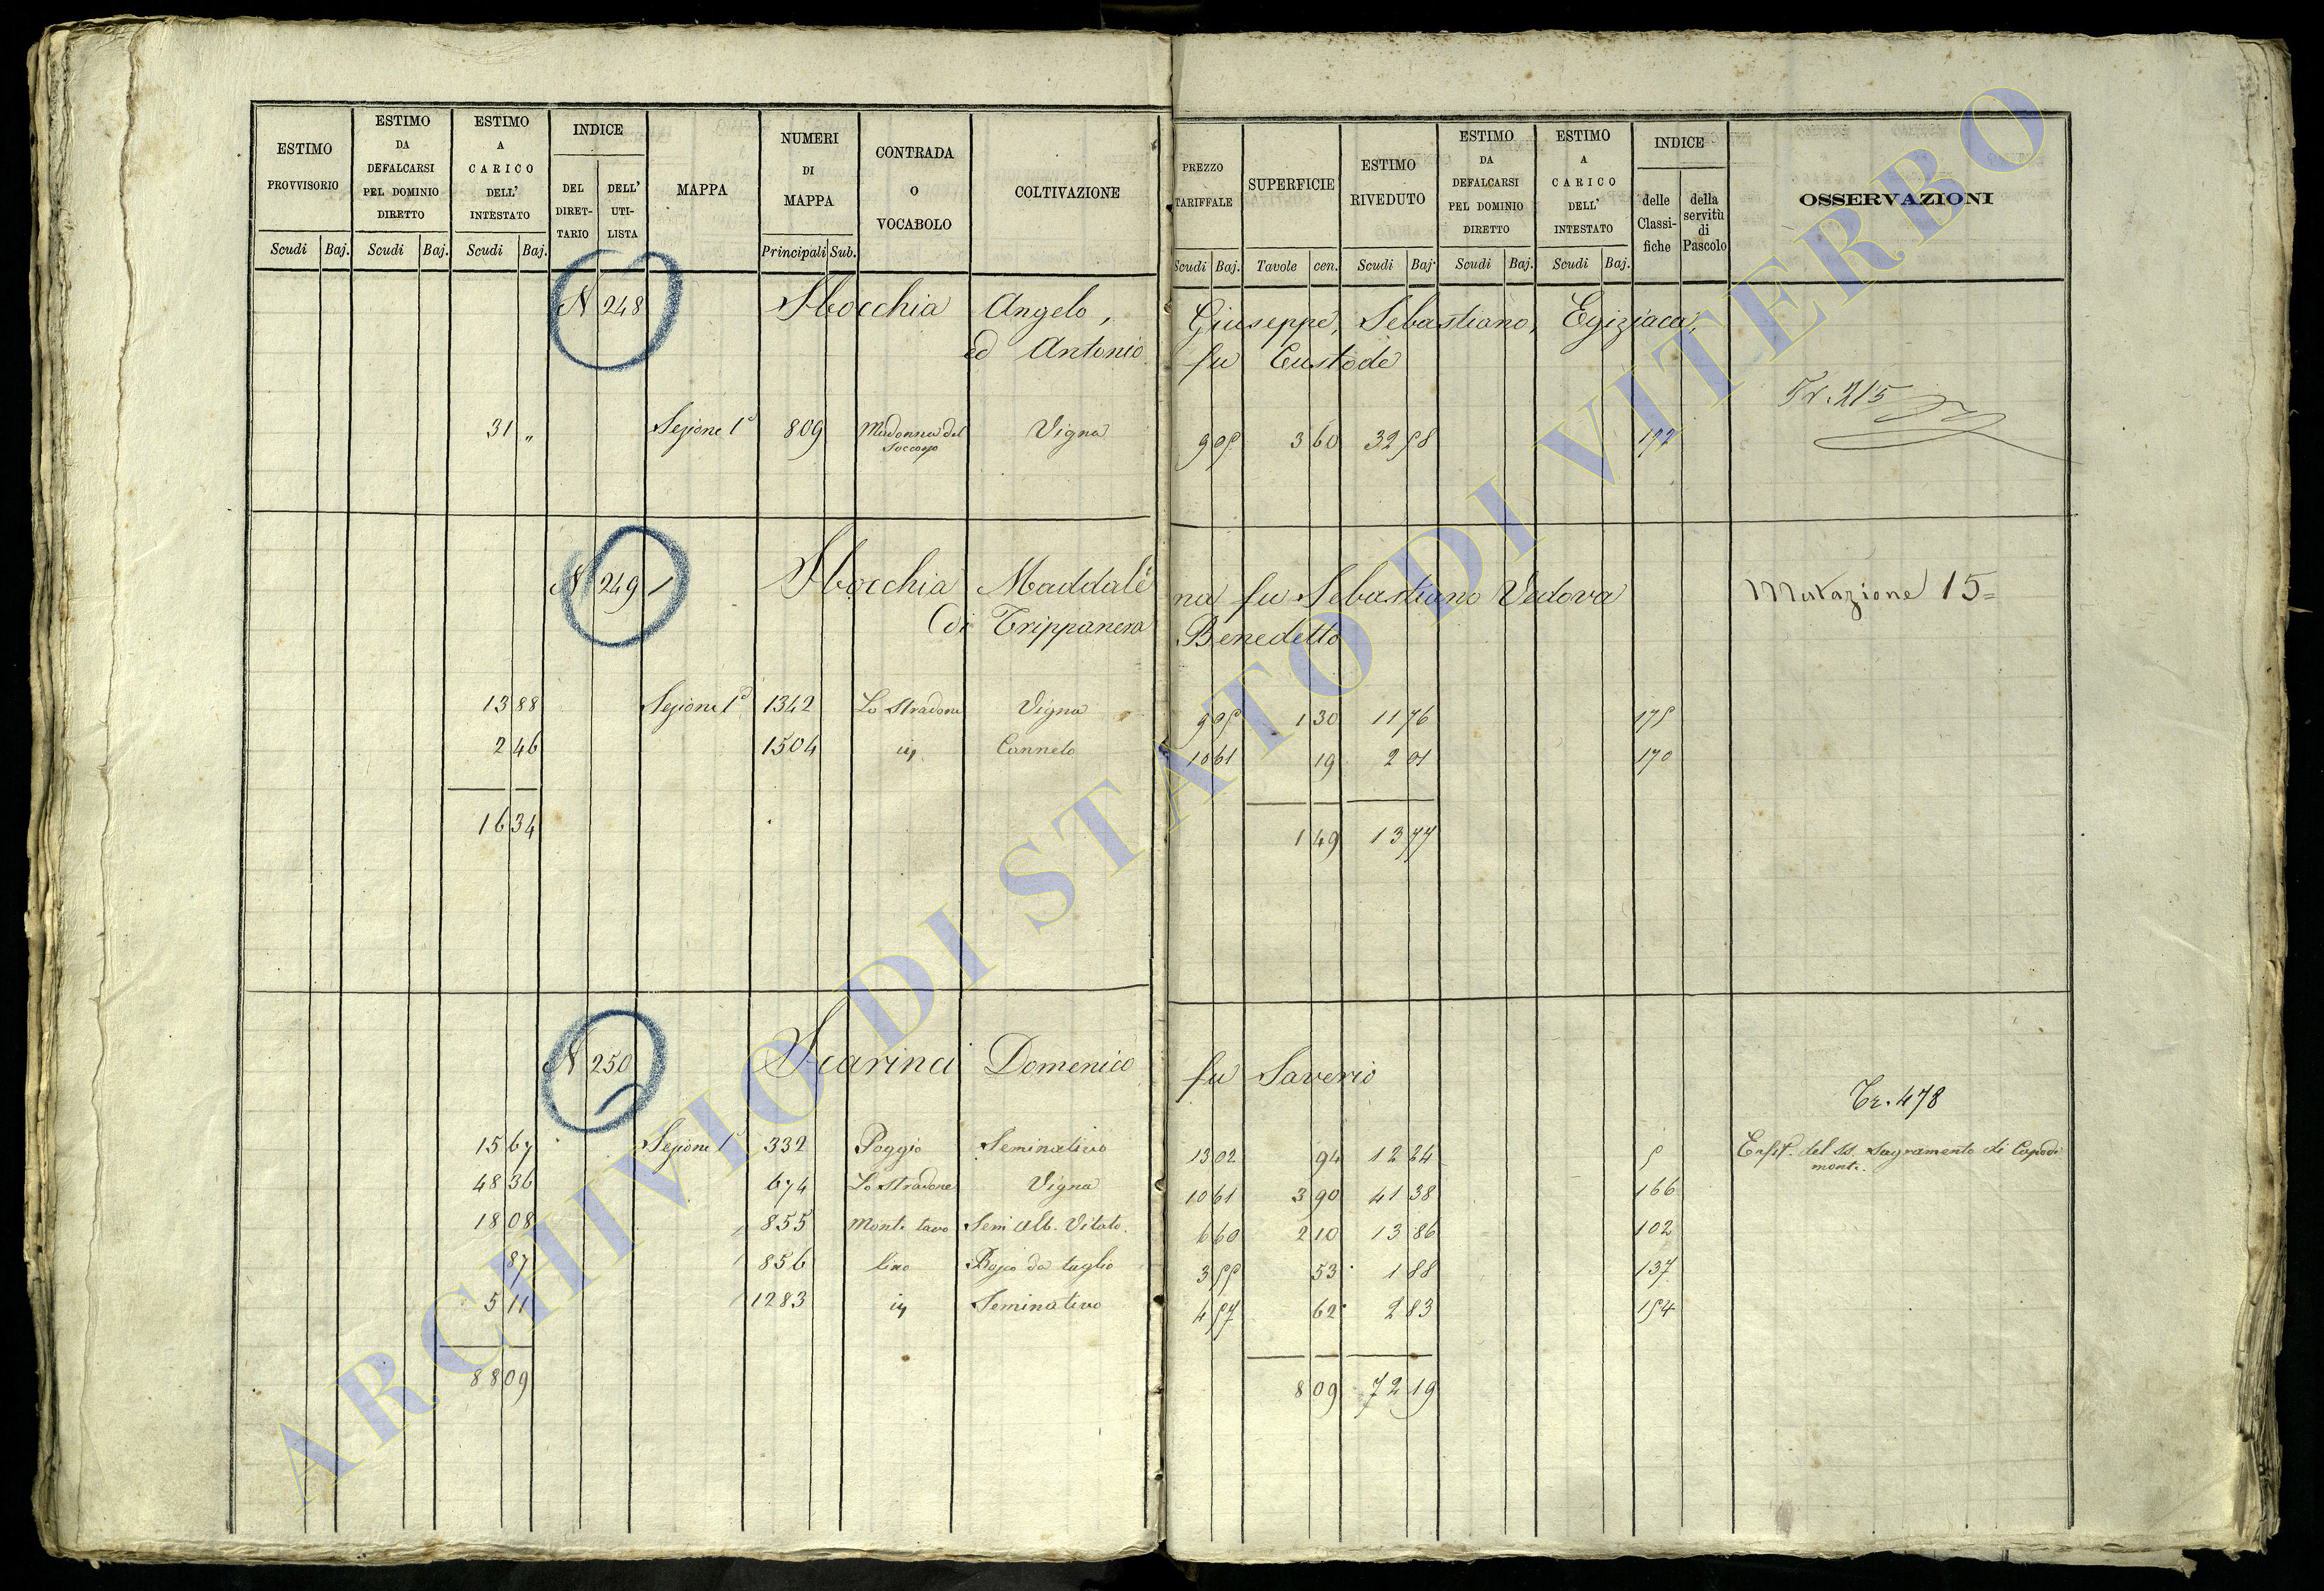 ESTIMO PROVVISORIO
ESTIMO DA DEFALCARSI PEL DOMINIO DIRETTO
ESTIMO A CARICO DELL' INTESTATO
INDICE
DEL DIRET-TARIO
DELL' UTI-LISTA
MAPPA
NUMERI DI MAPPA
CONTRADA O VOCABOLO
COLTIVAZIONE
PREZZO TARIFFALE
SUPERFICIE
ESTIMO RIVEDUTO
ESTIMO DA DEFALCARSI PEL DOMINIO DIRETTO
ESTIMO A CARICO DELL' INTESTATO
INDICE
delle Classi-fiche
della servitù di Pascolo
OSSERVAZIONI
Scudi Baj. Scudi Baj. Scudi Baj. Principali Sub. Scudi Baj. Tavole cen. Scudi Baj. Scudi Baj. Scudi Baj.
N 248 Sbocchia Angelo, Giuseppe, Sebastiano, Egiziaca,
ed Antonio fu Eustode
Tr. 215
31 „ Sezione 1ª 809 Madonna del Soccorso Vigna 9 05 3 60 32 58
N 249 Sbocchia Maddalena fu Sebastiano Vedova Mutazione 15=
di Trippanera Benedetto
13 88 Sezione 1ª 1342 Lo Stradone Vigna 9 05 1 30 11 76 175
2 46 1504 iv Canneto 10 61 19 2 01 170
16 34 1 49 13 77
N 250 Scarinci Domenico fu Saverio
Tr. 478
15 67 Sezione 1ª 332 Poggio Seminativo 13 02 94 12 24 5 Enfit. del SS. Sagramento di Capodimonte.
48 36 674 Lo Stradone Vigna 10 61 3 90 41 38 166
18 08 855 Monte tavo Sem Alb. Vitato. 6 60 2 10 13 86 102
87 856 lino Bosco da taglio 3 55 53 1 88 137
5 11 1283 iv Seminativo 4 57 62 2 83 154
88 09 8 09 72 19
ARCHIVIO DI STATO DI VITERBO